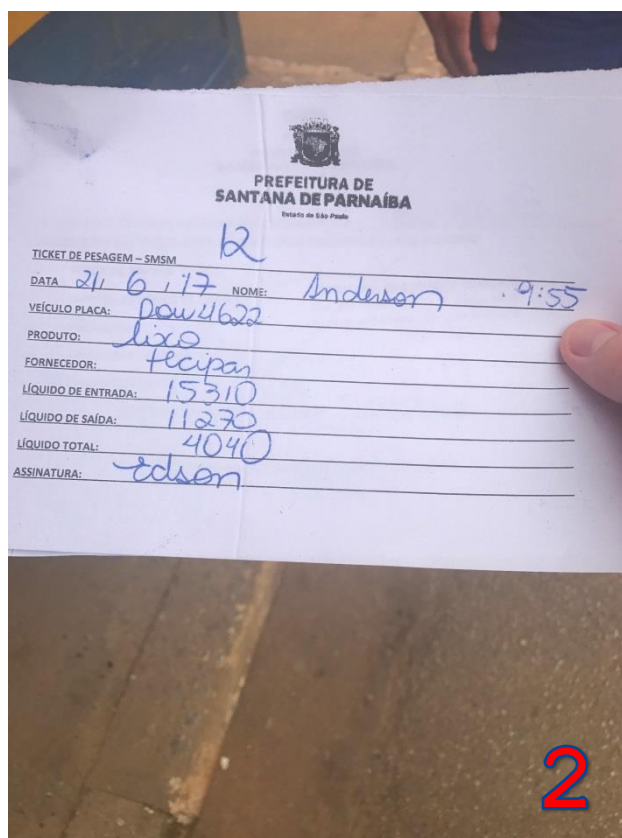 PREFEITURA DE
SANTANA DE PARNAÍBA
Estado de São Paulo
12
TICKET DE PESAGEM – SMSM
DATA 21, 6, 17 NOME: Anderson 9:55
VEÍCULO PLACA: DOW4622
PRODUTO: lixo
FORNECEDOR: tecipar
LÍQUIDO DE ENTRADA: 15310
LÍQUIDO DE SAÍDA: 11270
LÍQUIDO TOTAL: 4040
ASSINATURA: Edson
2